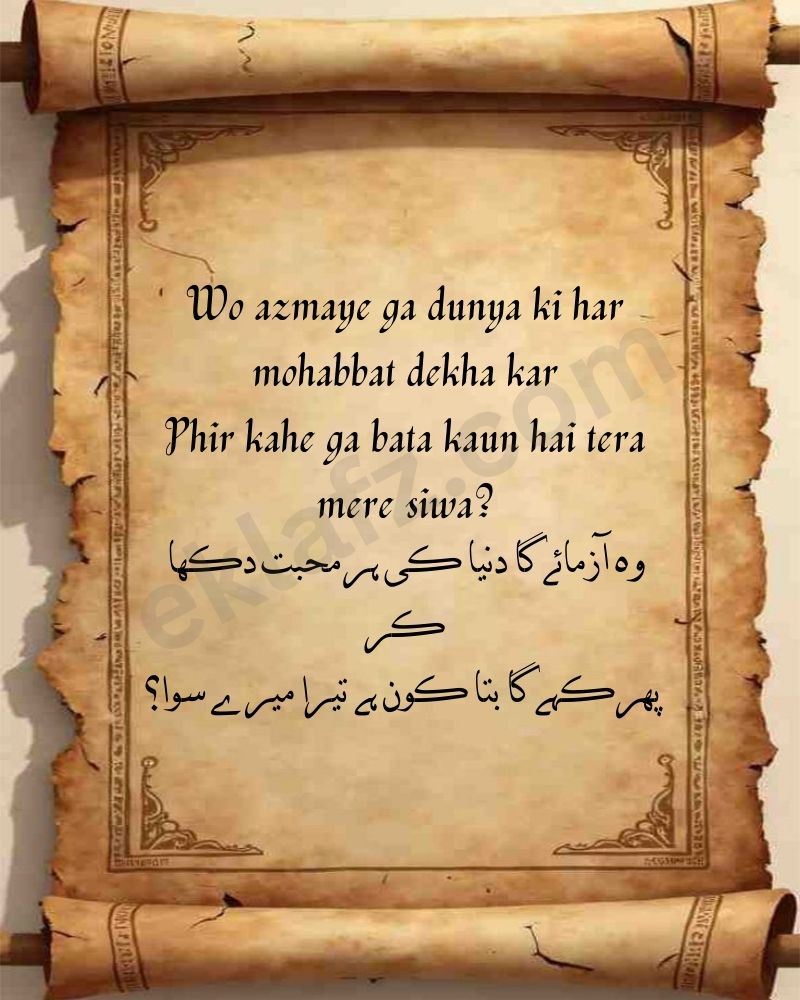 Wo azmaye ga dunya ki har
mohabbat dekha kar
Phir kahe ga bata kaun hai tera
mere siwa?
وہ آزمائے گا دنیا کی ہر محبت دکھا
کر
پھر کہے گا بتا کون ہے تیرا میرے سوا؟
eklafz.com